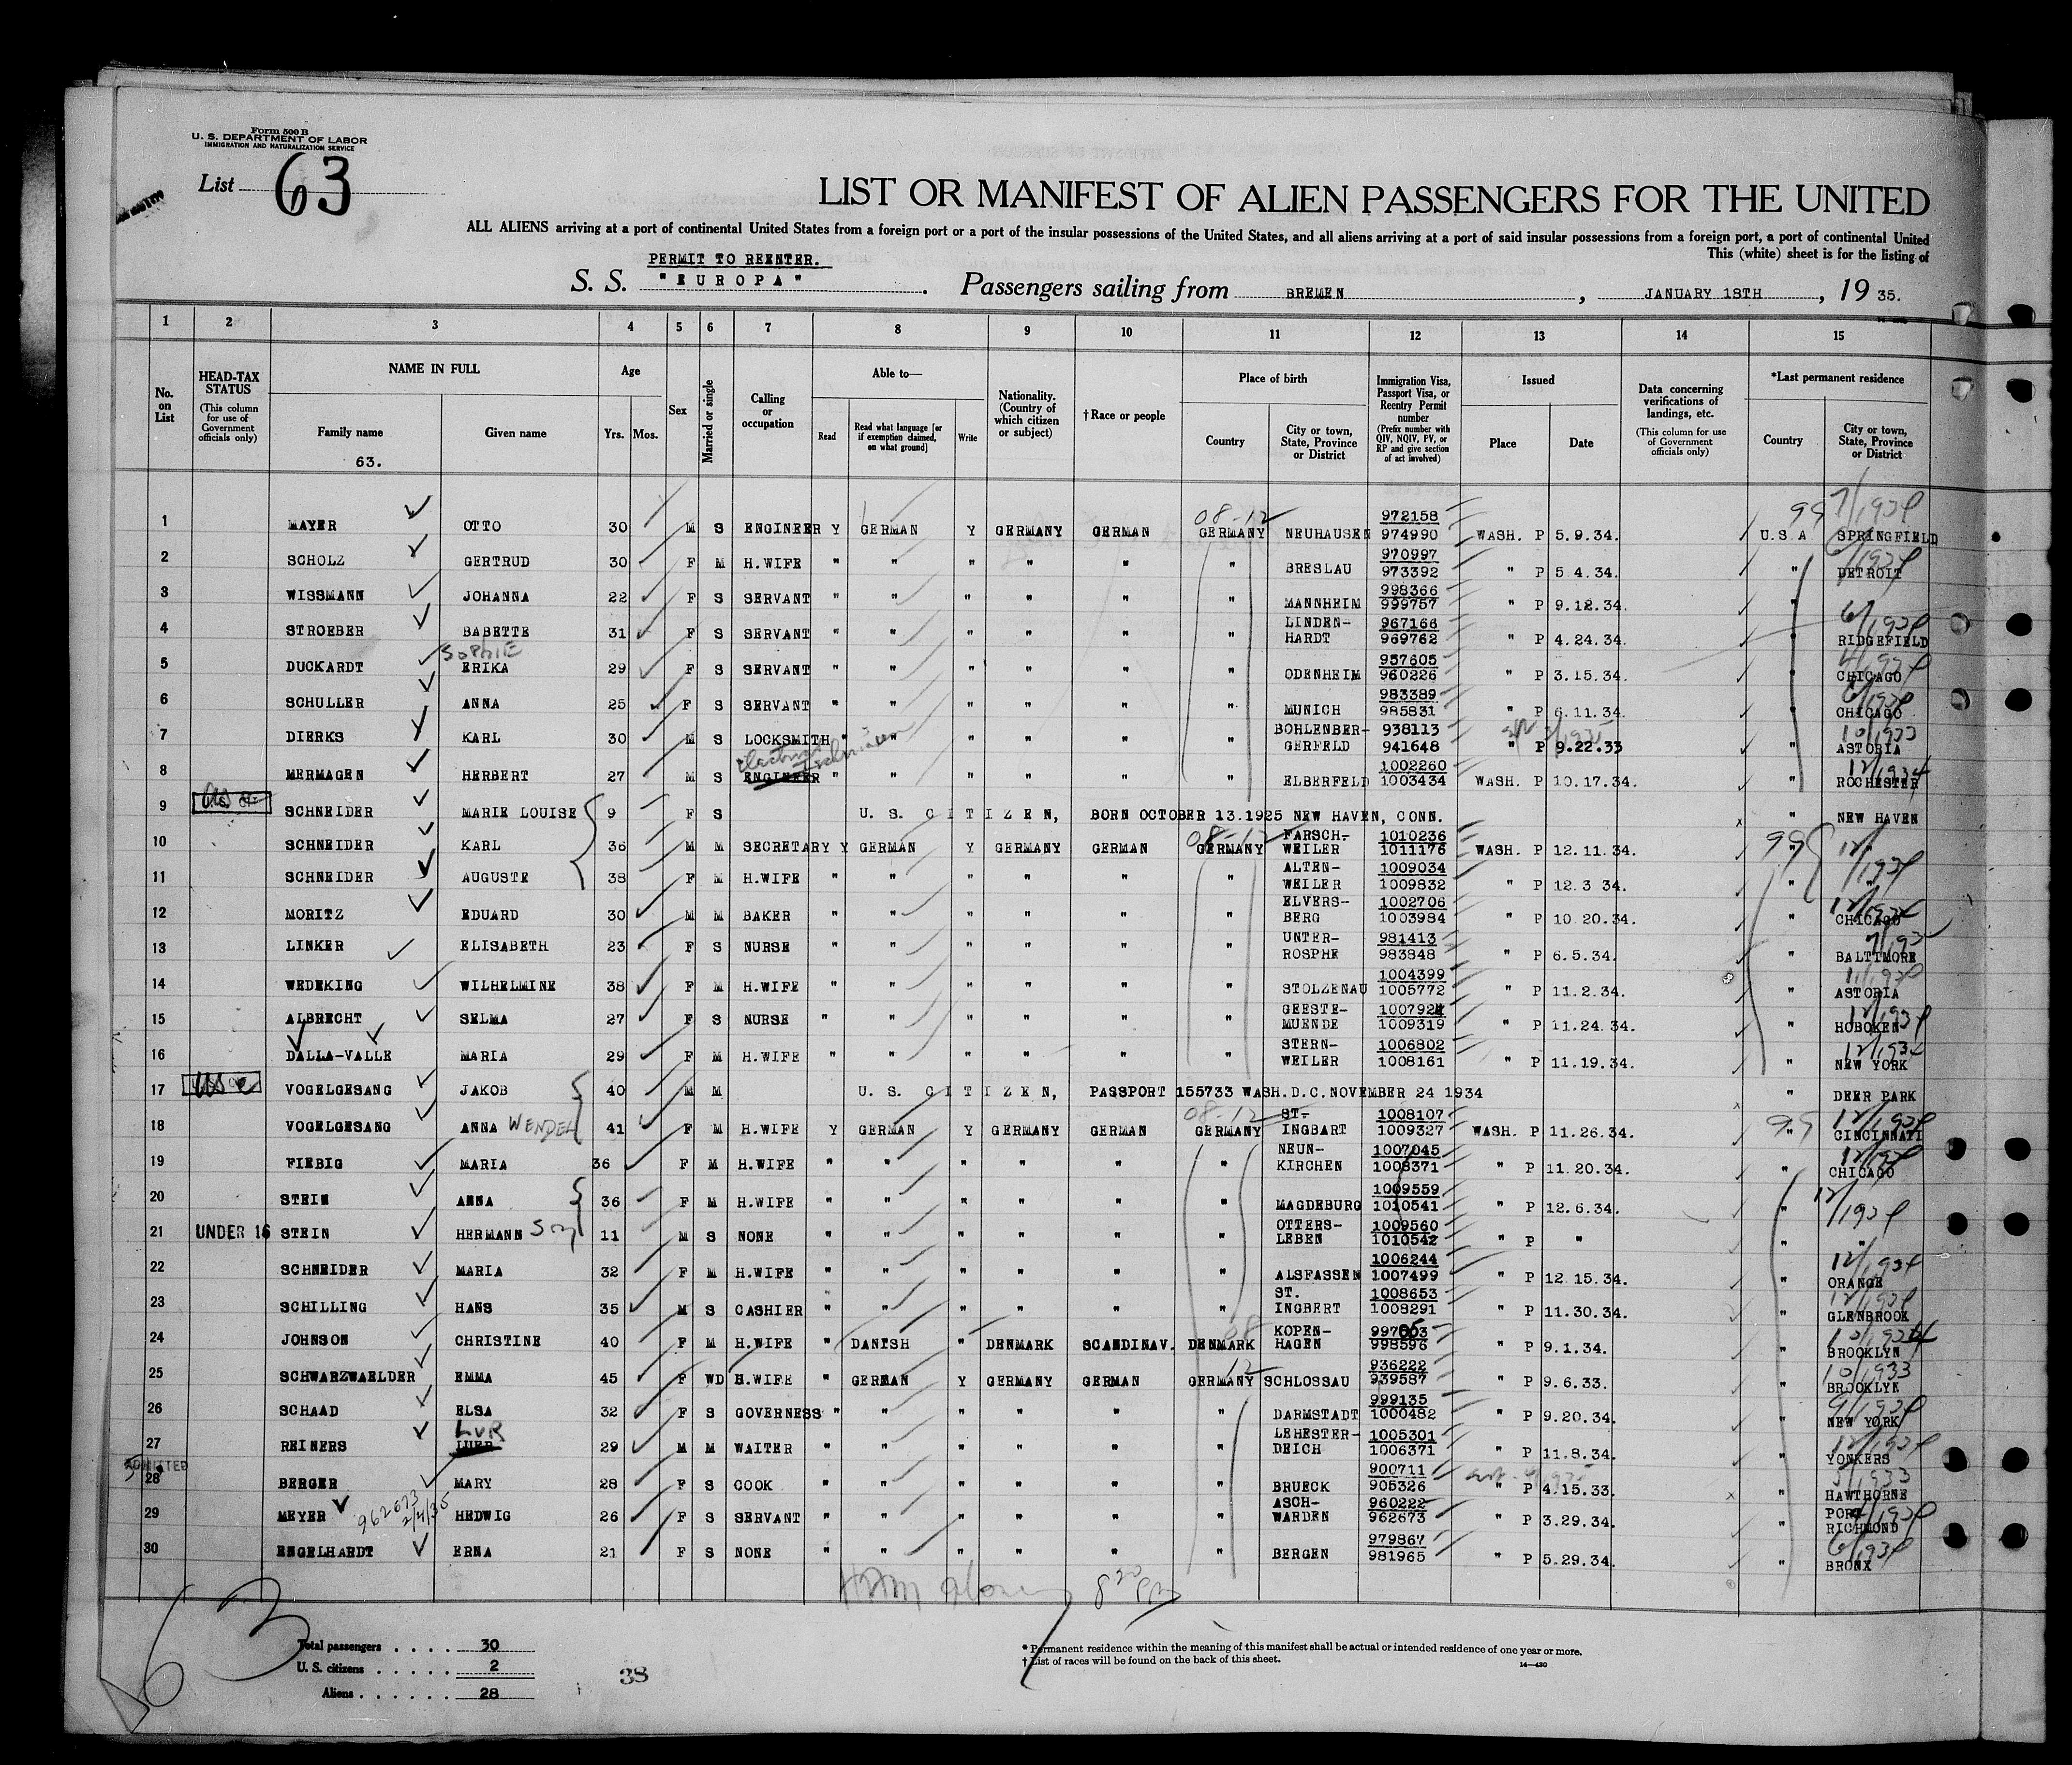 Form 500 B
U. S. DEPARTMENT OF LABOR
IMMIGRATION AND NATURALIZATION SERVICE
List 63
LIST OR MANIFEST OF ALIEN PASSENGERS FOR THE UNITED
ALL ALIENS arriving at a port of continental United States from a foreign port or a port of the insular possessions of the United States, and all aliens arriving at a port of said insular possessions from a foreign port, a port of continental United
This (white) sheet is for the listing of
PERMIT TO REENTER.
S. S. "EUROPA". Passengers sailing from BREMEN, JANUARY 18TH, 19 35.
1 2 3 4 5 6 7 8 9 10 11 12 13 14 15
No. on List
HEAD-TAX STATUS (This column for use of Government officials only)
NAME IN FULL
Family name Given name
63.
Age
Yrs. Mos.
Sex
Married or single
Calling or occupation
Able to—
Read
Read what language [or if exemption claimed, on what ground]
Write
Nationality. (Country of which citizen or subject)
†Race or people
Place of birth
Country
City or town, State, Province or District
Immigration Visa, Passport Visa, or Reentry Permit number (Prefix number with QIV, NQIV, PV, or RP and give section of act involved)
Issued
Place Date
Data concerning verifications of landings, etc. (This column for use of Government officials only)
*Last permanent residence
Country
City or town, State, Province or District
1 MAYER OTTO 30 M S ENGINEER Y GERMAN Y GERMANY GERMAN 08-12 GERMANY NEUHAUSEN 972158 974990 WASH. P 5.9.34. 99 U.S.A SPRINGFIELD 7/1934
2 SCHOLZ GERTRUD 30 F M H.WIFE " " " " " " BRESLAU 970997 973392 " P 5.4.34. " DETROIT
3 WISSMANN JOHANNA 22 F S SERVANT " " " " " " MANNHEIM 998366 999757 " P 9.12.34. "
4 STROEBER BABETTE 31 F S SERVANT " " " " " " LINDEN-HARDT 967166 969762 " P 4.24.34. " RIDGEFIELD 6/1934
5 DUCKARDT SOPHIE ERIKA 29 F S SERVANT " " " " " " ODENHEIM 957605 960226 " P 3.15.34. " CHICAGO 4/1934
6 SCHULLER ANNA 25 F S SERVANT " " " " " " MUNICH 983389 985831 " P 6.11.34. " CHICAGO 6/1934
7 DIERKS KARL 30 M S LOCKSMITH " " " " " " BOHLENBER-GERFELD 938113 941648 " P 9.22.33 " ASTORIA 10/1933
8 MERMAGEN HERBERT 27 M S ENGINEER " " " " " " ELBERFELD 1002260 1003434 WASH. P 10.17.34. " ROCHESTER 12/1934
9 SCHNEIDER MARIE LOUISE 9 F S U. S. CITIZEN, BORN OCTOBER 13.1925 NEW HAVEN, CONN. " NEW HAVEN
10 SCHNEIDER KARL 36 M M SECRETARY Y GERMAN Y GERMANY GERMAN 08-12 GERMANY FARSCH-WEILER 1010236 1011176 WASH. P 12.11.34. 99 " "
11 SCHNEIDER AUGUSTE 38 F M H.WIFE " " " " " " ALTEN-WEILER 1009034 1009832 " P 12.3 34. " " 12/1934
12 MORITZ EDUARD 30 M M BAKER " " " " " " ELVERS-BERG 1002706 1003984 " P 10.20.34. " CHICAGO 12/1934
13 LINKER ELISABETH 23 F S NURSE " " " " " " UNTER-ROSPHE 981413 983848 " P 6.5.34. " BALTIMORE
14 WEDEKING WILHELMINE 38 F M H.WIFE " " " " " " STOLZENAU 1004399 1005772 " P 11.2.34. " ASTORIA 11/1934
15 ALBRECHT SELMA 27 F S NURSE " " " " " " GEESTE-MUENDE 1007924 1009319 " P 11.24.34. " HOBOKEN 12/1934
16 DALLA-VALLE MARIA 29 F M H.WIFE " " " " " " STERN-WEILER 1006802 1008161 " P 11.19.34. " NEW YORK 12/1934
17 VOGELGESANG JAKOB 40 M M U. S. CITIZEN, PASSPORT 155733 WASH.D.C.NOVEMBER 24 1934 " DEER PARK
18 VOGELGESANG ANNA WENDEL 41 F M H.WIFE Y GERMAN Y GERMANY GERMAN 08-12 GERMANY ST.-INGBART 1008107 1009327 WASH. P 11.26.34. 99 " CINCINNATI 12/1934
19 FIEBIG MARIA 36 F M H.WIFE " " " " " " NEUN-KIRCHEN 1007045 1008371 " P 11.20.34. " CHICAGO 12/1934
20 STEIN ANNA 36 F M H.WIFE " " " " " " MAGDEBURG 1009559 1010541 " P 12.6.34. " " 12/1934
21 UNDER 16 STEIN HERMANN Son 11 M S NONE " " " " " " OTTERS-LEBEN 1009560 1010542 " P " " "
22 SCHNEIDER MARIA 32 F M H.WIFE " " " " " " ALSFASSEN 1006244 1007499 " P 12.15.34. " ORANGE 12/1934
23 SCHILLING HANS 35 M S CASHIER " " " " " " ST. INGBERT 1008653 1008291 " P 11.30.34. " GLENBROOK 12/1934
24 JOHNSON CHRISTINE 40 F M H.WIFE " DANISH " DENMARK SCANDINAV. DENMARK 08 KOPEN-HAGEN 998596 " P 9.1.34. " BROOKLYN 10/1934
25 SCHWARZWAELDER EMMA 45 F WD H.WIFE " GERMAN Y GERMANY GERMAN GERMANY 12 SCHLOSSAU 936222 939587 " P 9.6.33. " BROOKLYN 10/1933
26 SCHAAD ELSA 32 F S GOVERNESS " " " " " " DARMSTADT 999135 1000482 " P 9.20.34. " NEW YORK 9/1934
27 REINERS LUER LVR 29 M M WAITER " " " " " " LEHESTER-DEICH 1005301 1006371 " P 11.8.34. " YONKERS 12/1934
ADMITTED
28 BERGER MARY 28 F S COOK " " " " " " BRUECK 900711 905326 " P 4.15.33. " HAWTHORNE 5/1933
29 MEYER 962673 2/4/35 HEDWIG 26 F S SERVANT " " " " " " ASCH-WARDEN 960222 962673 " P 3.29.34. " PORT RICHMOND 4/1934
30 ENGELHARDT ERNA 21 F S NONE " " " " " " BERGEN 979867 981965 " P 5.29.34. " BRONX 6/1934
63
Total passengers . . . . 30
U. S. citizens . . . . . 2
Aliens . . . . . . 28
38
* Permanent residence within the meaning of this manifest shall be actual or intended residence of one year or more.
† List of races will be found on the back of this sheet.
14—430